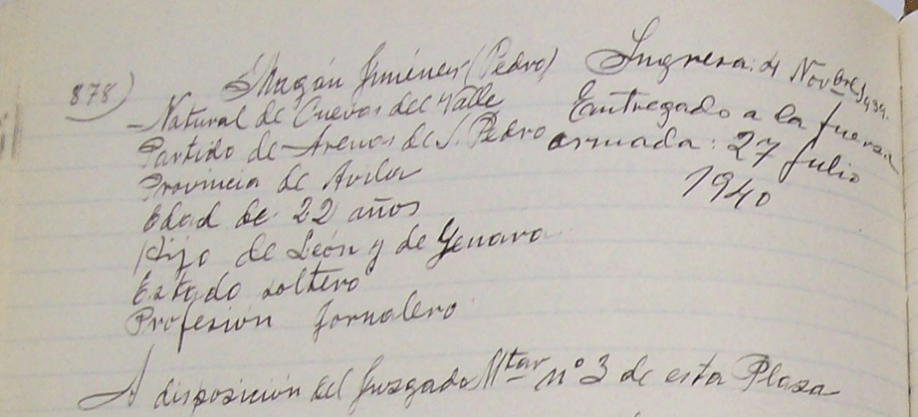 878) Magán Jiménez (Pedro)
Ingresa: 4 Novbre 1939.
- Natural de Cuevas del Valle
Entregado a la fuerza
Partido de Arenas de S. Pedro
armada: 27 Julio
Provincia de Avila
1940
Edad de 22 años
Hijo de León y de Genara
Estado soltero
Profesion Jornalero
A disposición del Juzgado Mtar nº 3 de esta Plaza